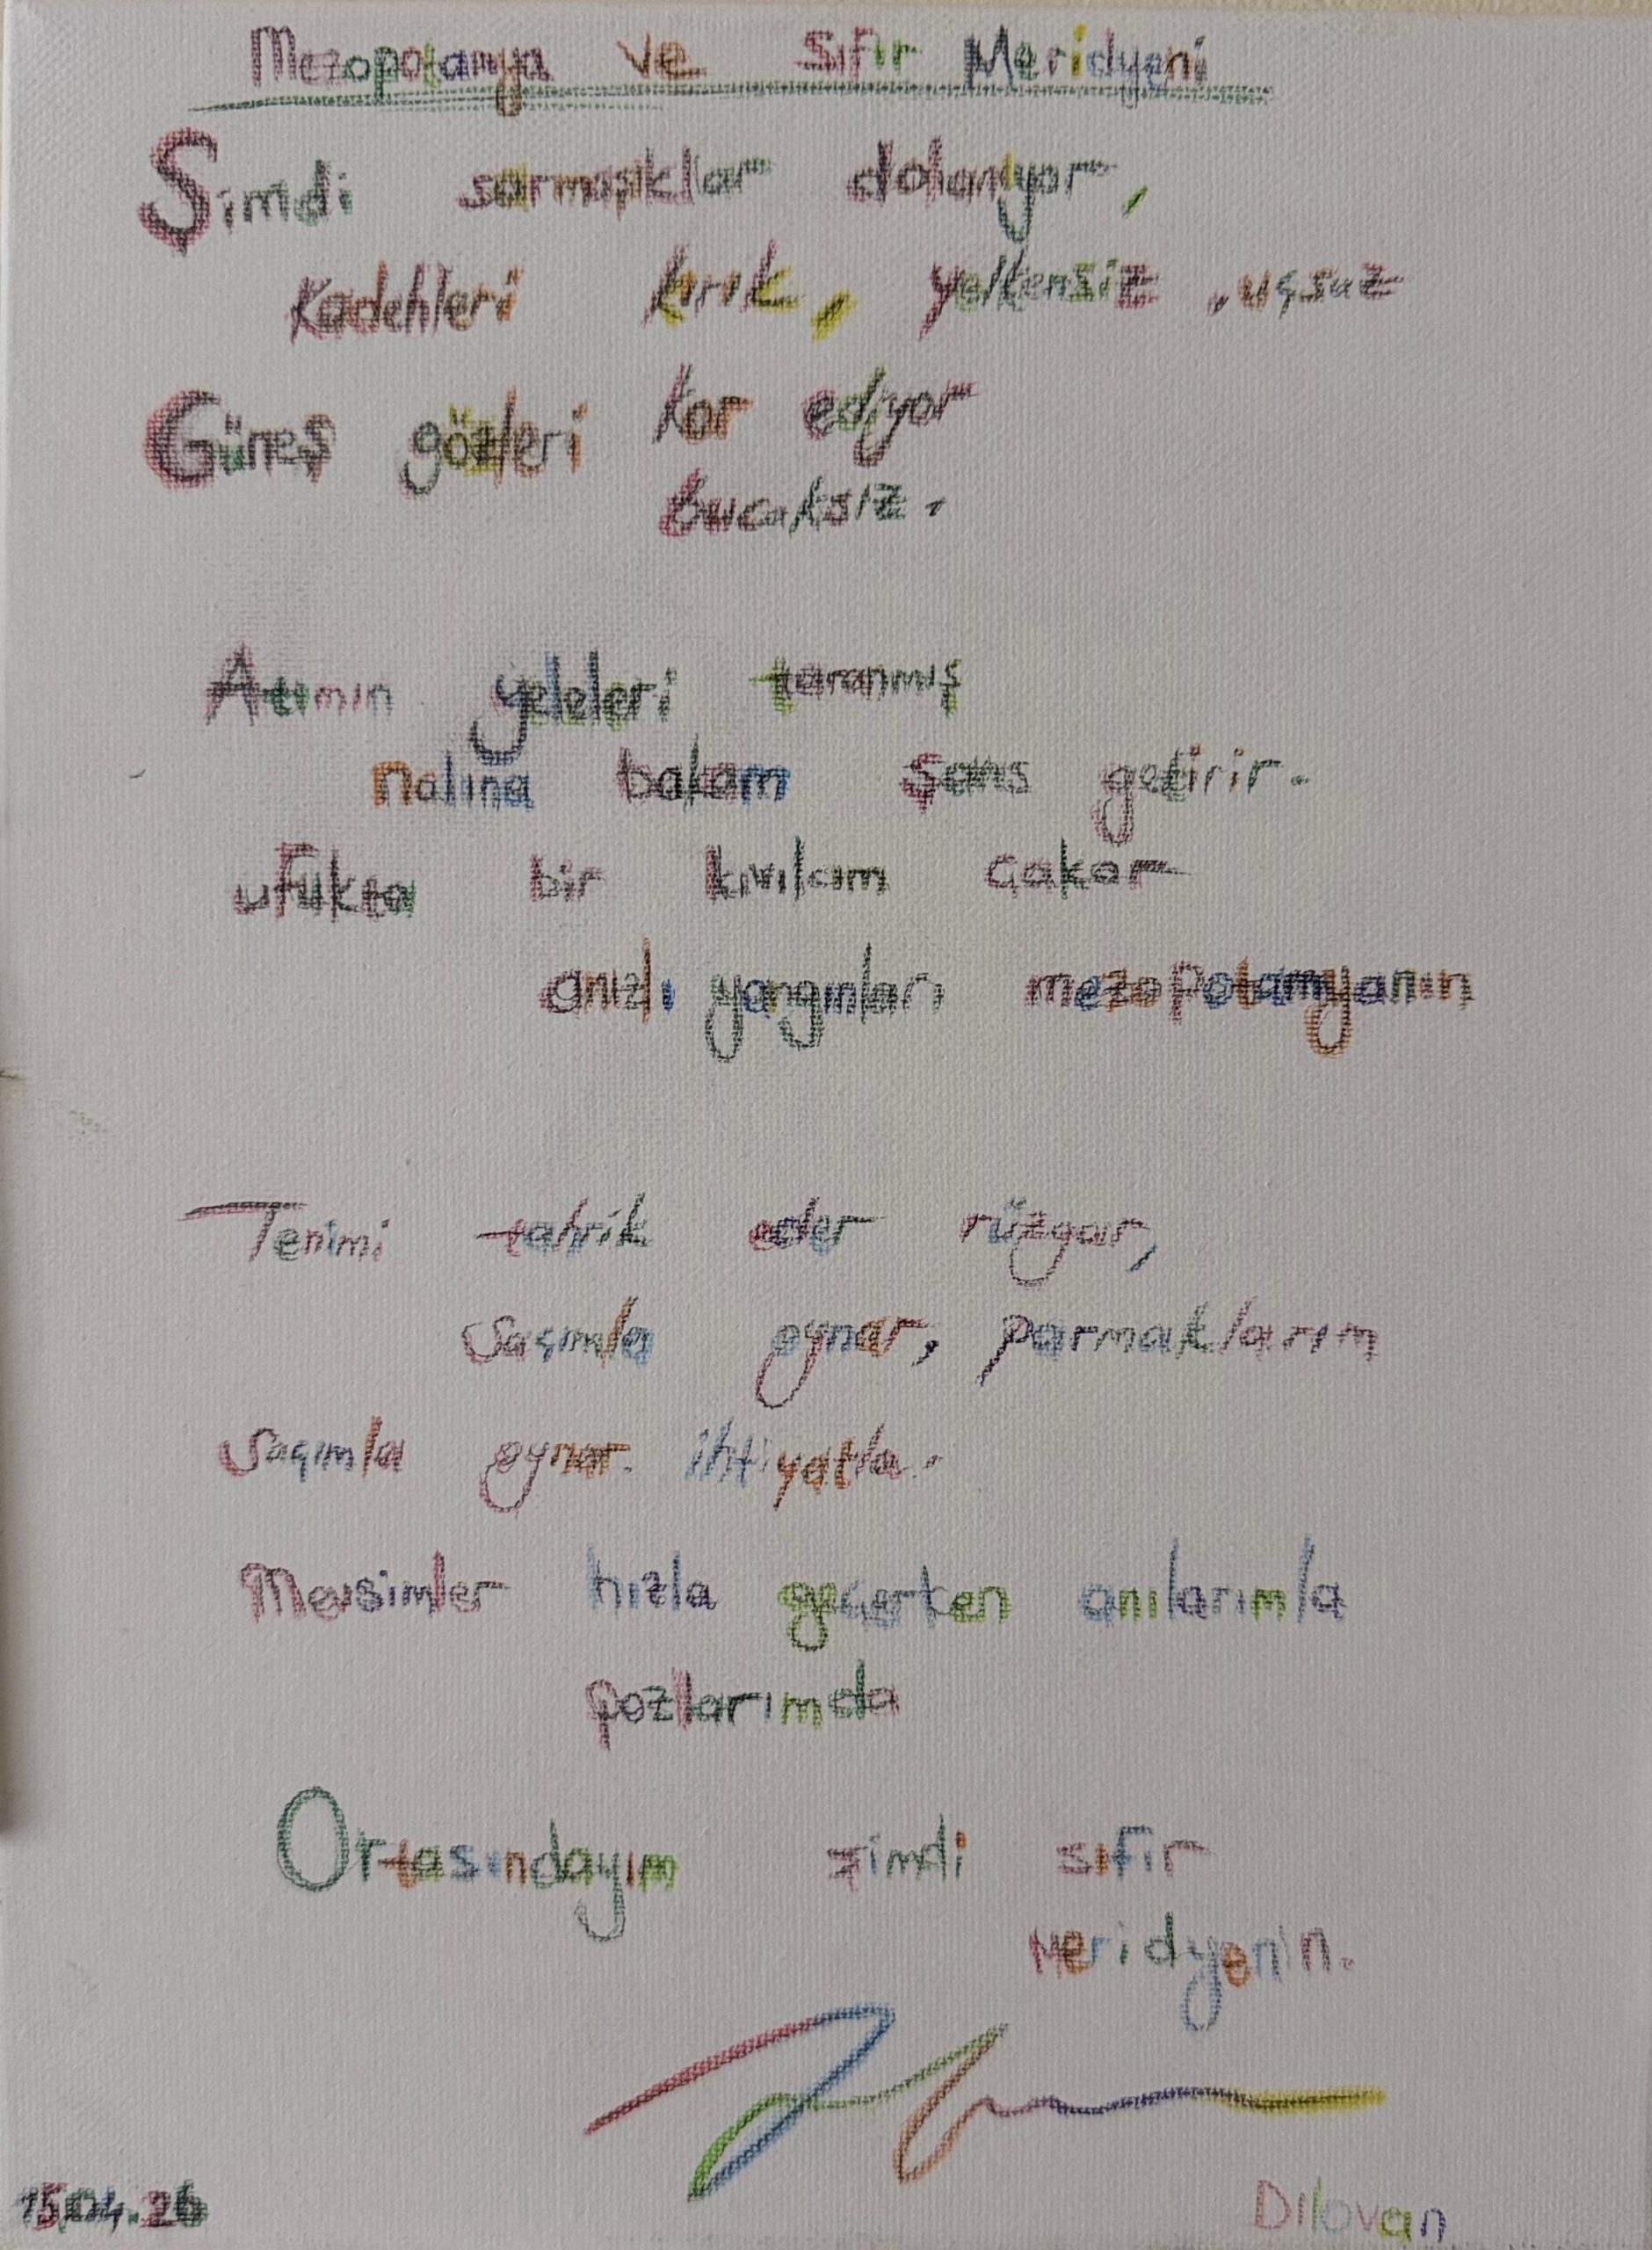 Mezopotamya ve Sıfır Meridyeni
Şimdi sarmaşıklar dolanıyor,
Kadehleri kırık, yelkensiz, uçsuz
Güneş gözleri kor ediyor
bucaksız.
Atımın yeleleri taranmış
nalına bakam şans getirir.
ufukta bir kıvılcım çakar
anızlı yangınları mezopotamyanın
Tenimi tahrik eder rüzgar,
Saçımla oynar, parmaklarım
Saçımla oynar. ihtiyatla.
Mevsimler hızla geçerken anılarımla
pozlarımda
Ortasındayım şimdi sıfır
Meridyenin.
15.04.26
Dilovan